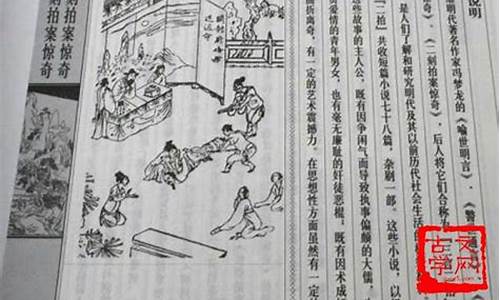 说明
明代著名作家冯梦龙的《喻世明言》、《警
《二刻拍案惊奇》，后人将它们合称为
是人们了解和研究明代及其以前历代社会生活的
二拍”共收短篇小说七十八篇，杂剧一部。这些小说，以
些故事的主人公，既有因争闲气而导致执事偏颇的大儒，
爱情的青年男女，也有毫无廉耻的奸徒恶棍，既有因术成
曲折离奇，有一定的艺术震撼力。在思想性方面虽然有一定
刻拍案惊奇
刻拍案惊奇
古文
学网